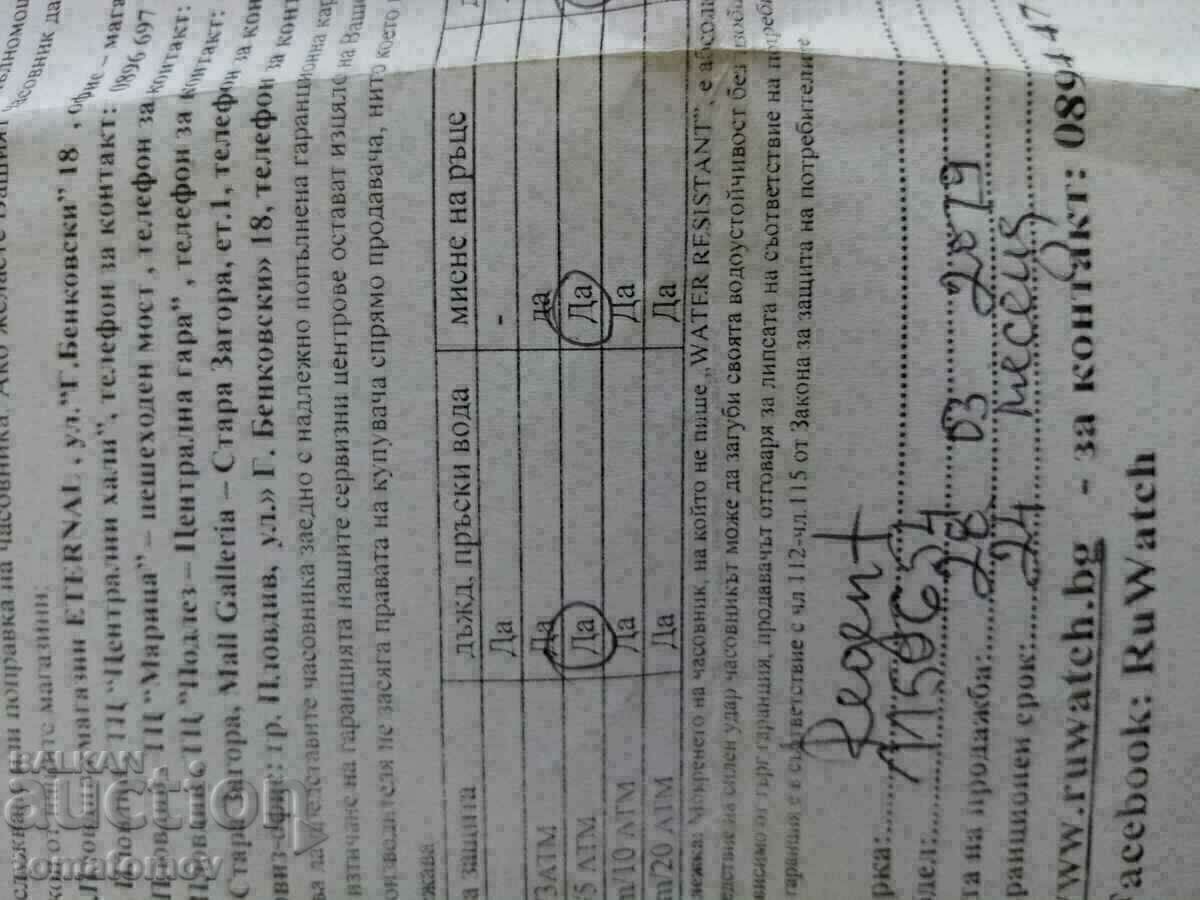 поправка на часовника. Ако желаете Вашият часовник да
магазини:
магазин ETERNAL, ул."Г.Бенковски" 18, офис – мага
ТЦ "Централни хали", телефон за контакт: 0896 697
ТЦ "Марица" – пешеходен мост, телефон за контакт:
ТЦ "Подлез – Централна гара", телефон за контакт:
Стара Загора, Mall Galleria – Стара Загора, ет.1, телефон за кон
офис: гр. Пловдив, ул.» Г. Бенковски» 18, телефон за конт
да представите часовника заедно с надлежно попълнена гаранционна кар
изтичане на гаранцията нашите сервизни центрове остават изцяло на Ваше
производителя не засяга правата на купувача спрямо продавача, нито което
а защита дъжд, пръски вода мисне на ръце
Да -
/3АТМ Да да
/5 АТМ Да Да
m/10 АТМ Да Да
m/20 АТМ Да Да
Мокренето на часовник, на който не пише „WATER RESISTANT”, е абсол
едствие на силен удар часовникът може да загуби своята водоустойчивост без
ависимо от търг.гаранция, продавачът отговаря за липсата на съответствие на потреби
гаранция е в съответствие с чл 112-чл.115 от Закона за защита на потребителите
рка: Regent
дел:
та на продажба: 28 03 2019
ранционен срок: 24 месеца
www.ruwatch.bg - за контакт: 0894 47
Facebook: RuWatch
BALKAN
auction
tomatomov